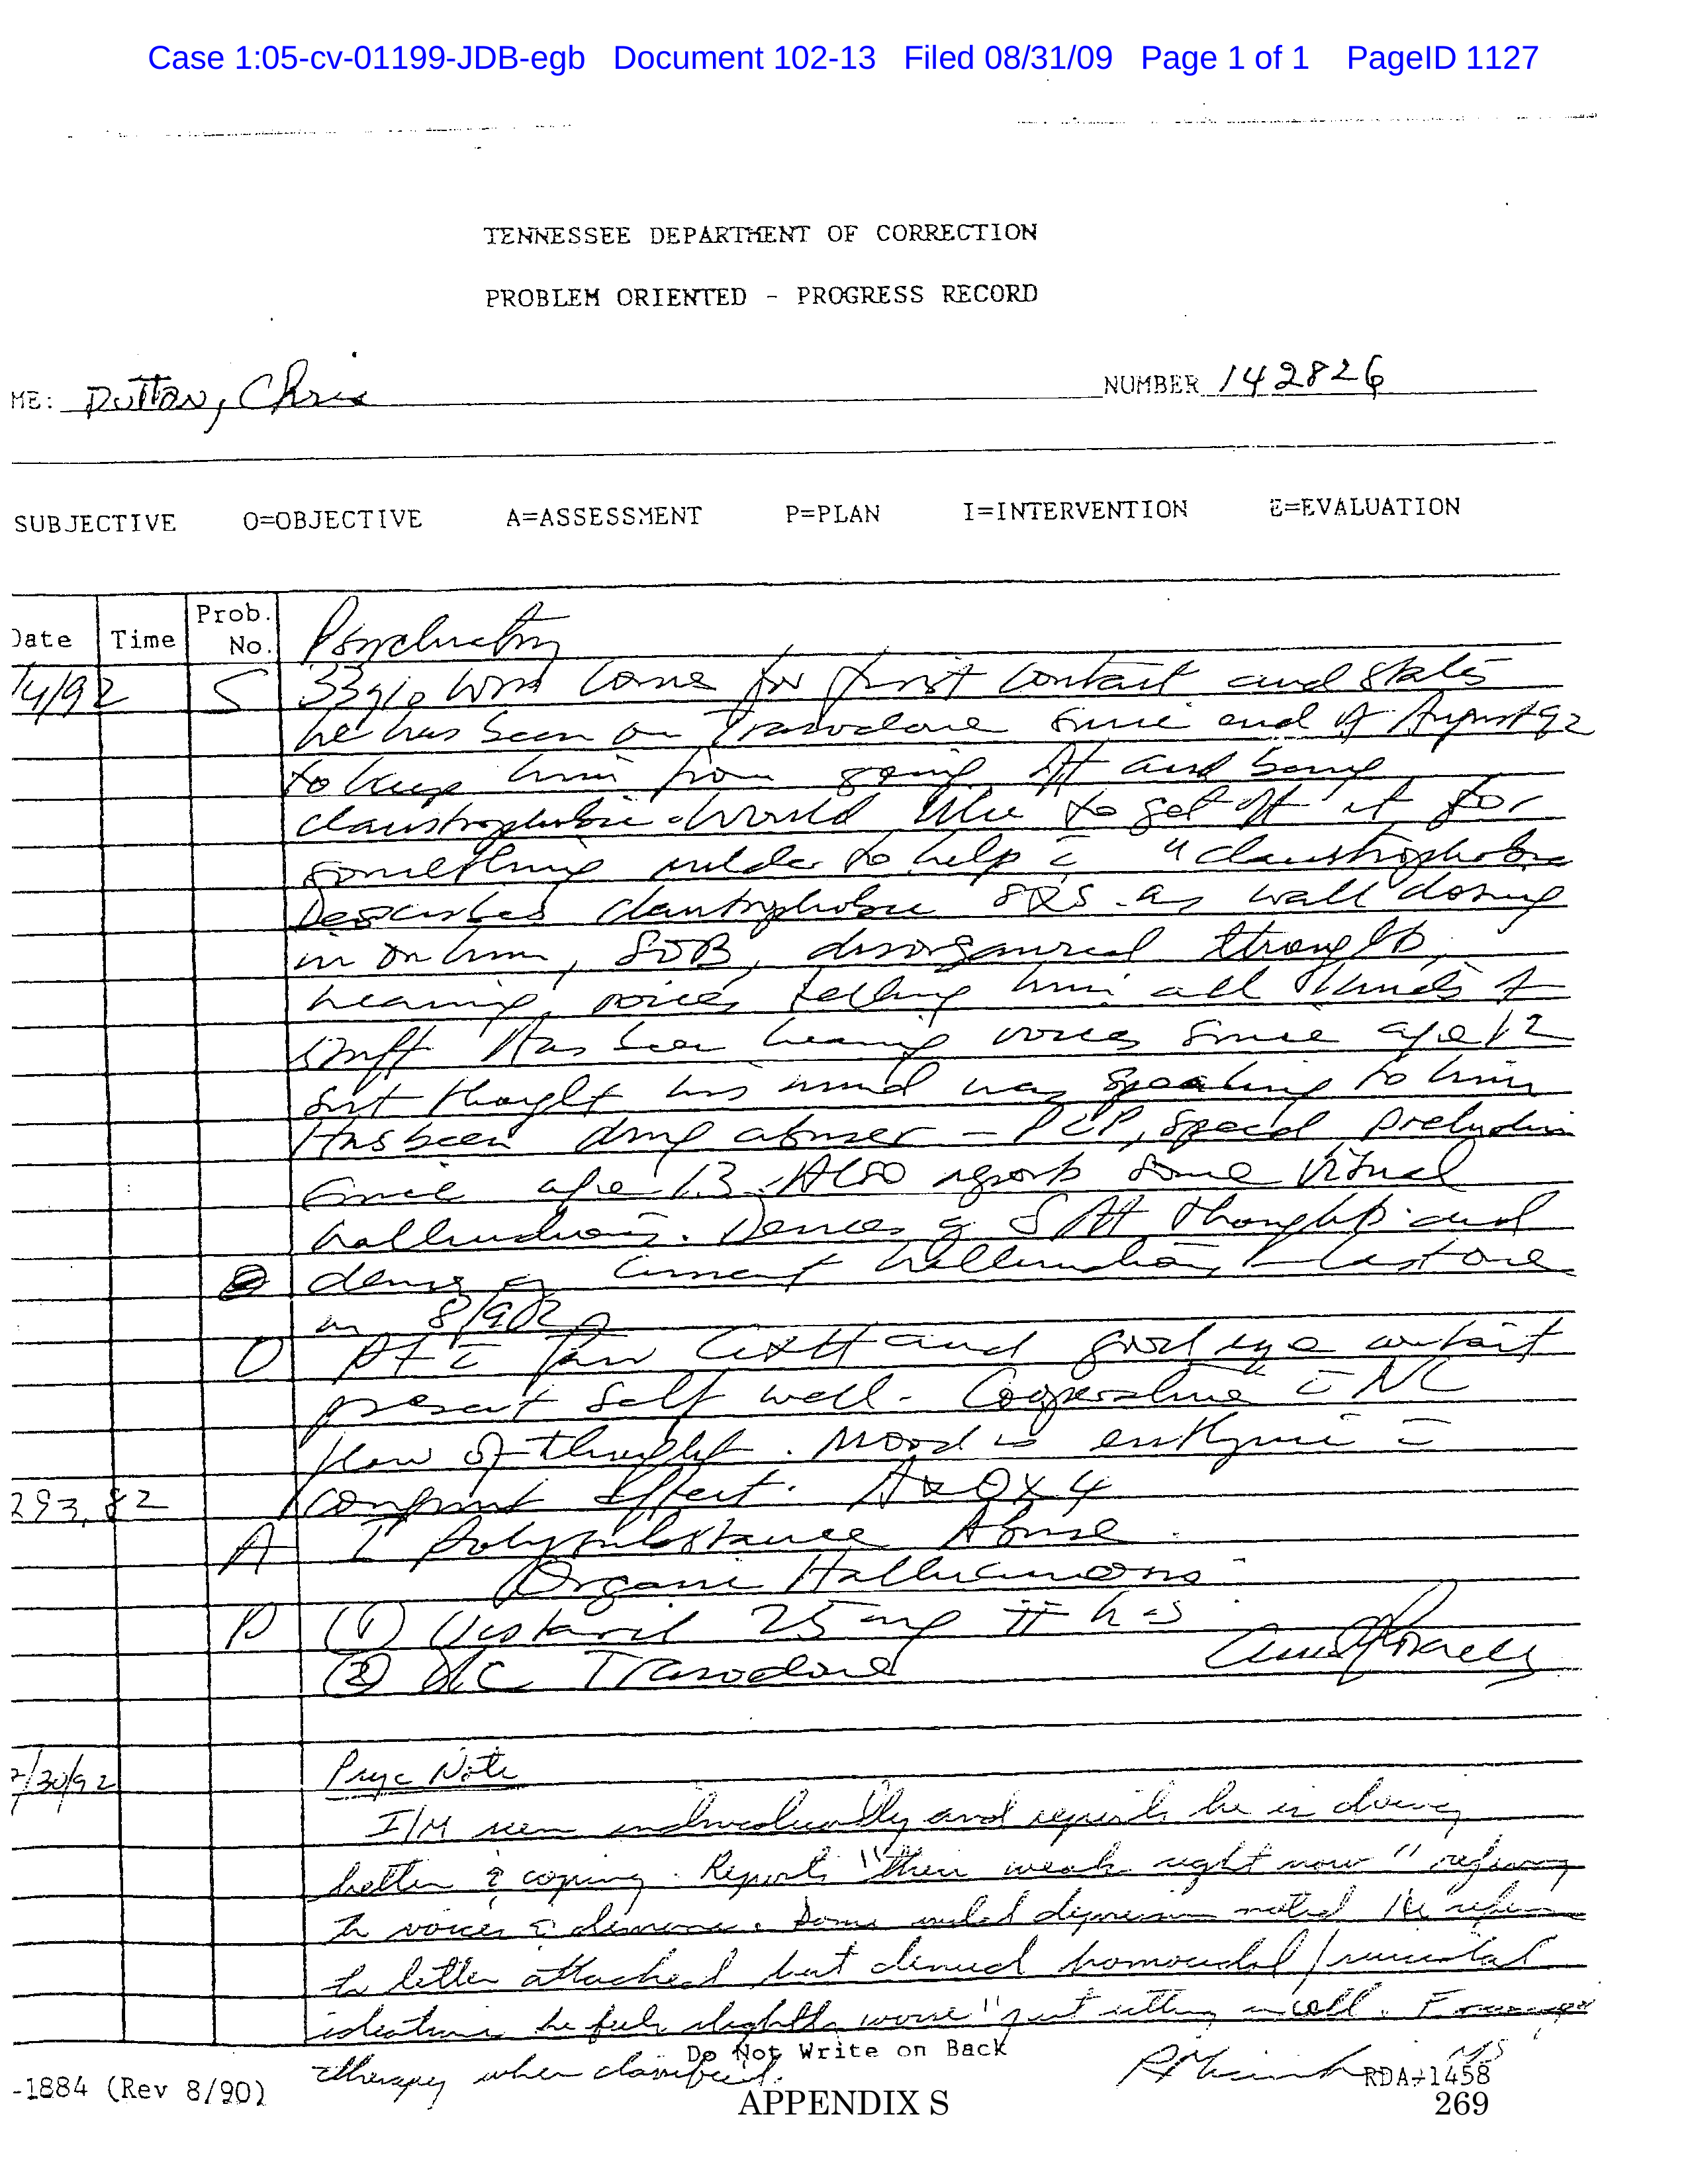 Case 1:05-cv-01199-JDB-egb Document 102-13 Filed 08/31/09 Page 1 of 1 PageID 1127
TENNESSEE DEPARTMENT OF CORRECTION
PROBLEM ORIENTED - PROGRESS RECORD
ME: Dutton, Chris NUMBER 142826
SUBJECTIVE O=OBJECTIVE A=ASSESSMENT P=PLAN I=INTERVENTION E=EVALUATION
Date Time Prob. No. Psychiatry
/4/92 S 33 y/o come for first contact and states
he has been on Trazodone since end of August 92
to keep him from going off and being
claustrophobic. Would like to get off it for
something milder to help c̄ "claustrophobia
Describes claustrophobic as wall closing
in on him, SOB, disorganized thoughts,
hearing voices telling him all kinds of
stuff Has been hearing voices since age 12
but thought his mind was speaking to him
Has been drug abuser - PCP, speed preludin
since age 13. Also reports some visual
hallucinations. Denies thoughts and
denies current hallucinations last one
in 8/92
O Pt c̄ and good eye contact
present self well - Cooperative c̄
flow of thought. Mood is euthymic c̄
293.82 congruent affect. A+OX4
A I Polysubstance Abuse
Organic Hallucinosis
P (1) Vistaril 25 mg hs
(2) D/C Trazodone
/30/92 Psyc Note
I/M seen individually and reports he is doing
better & coping. Reports "their weak right now" referring
to voices & demons. Some mild depression noted He refers
to letter attached but denied homicidal/suicidal
ideations he feels slightly worse "just sitting in cell.
therapy when classified.
Do Not Write on Back
-1884 (Rev 8/90) RDA-1458
APPENDIX S 269